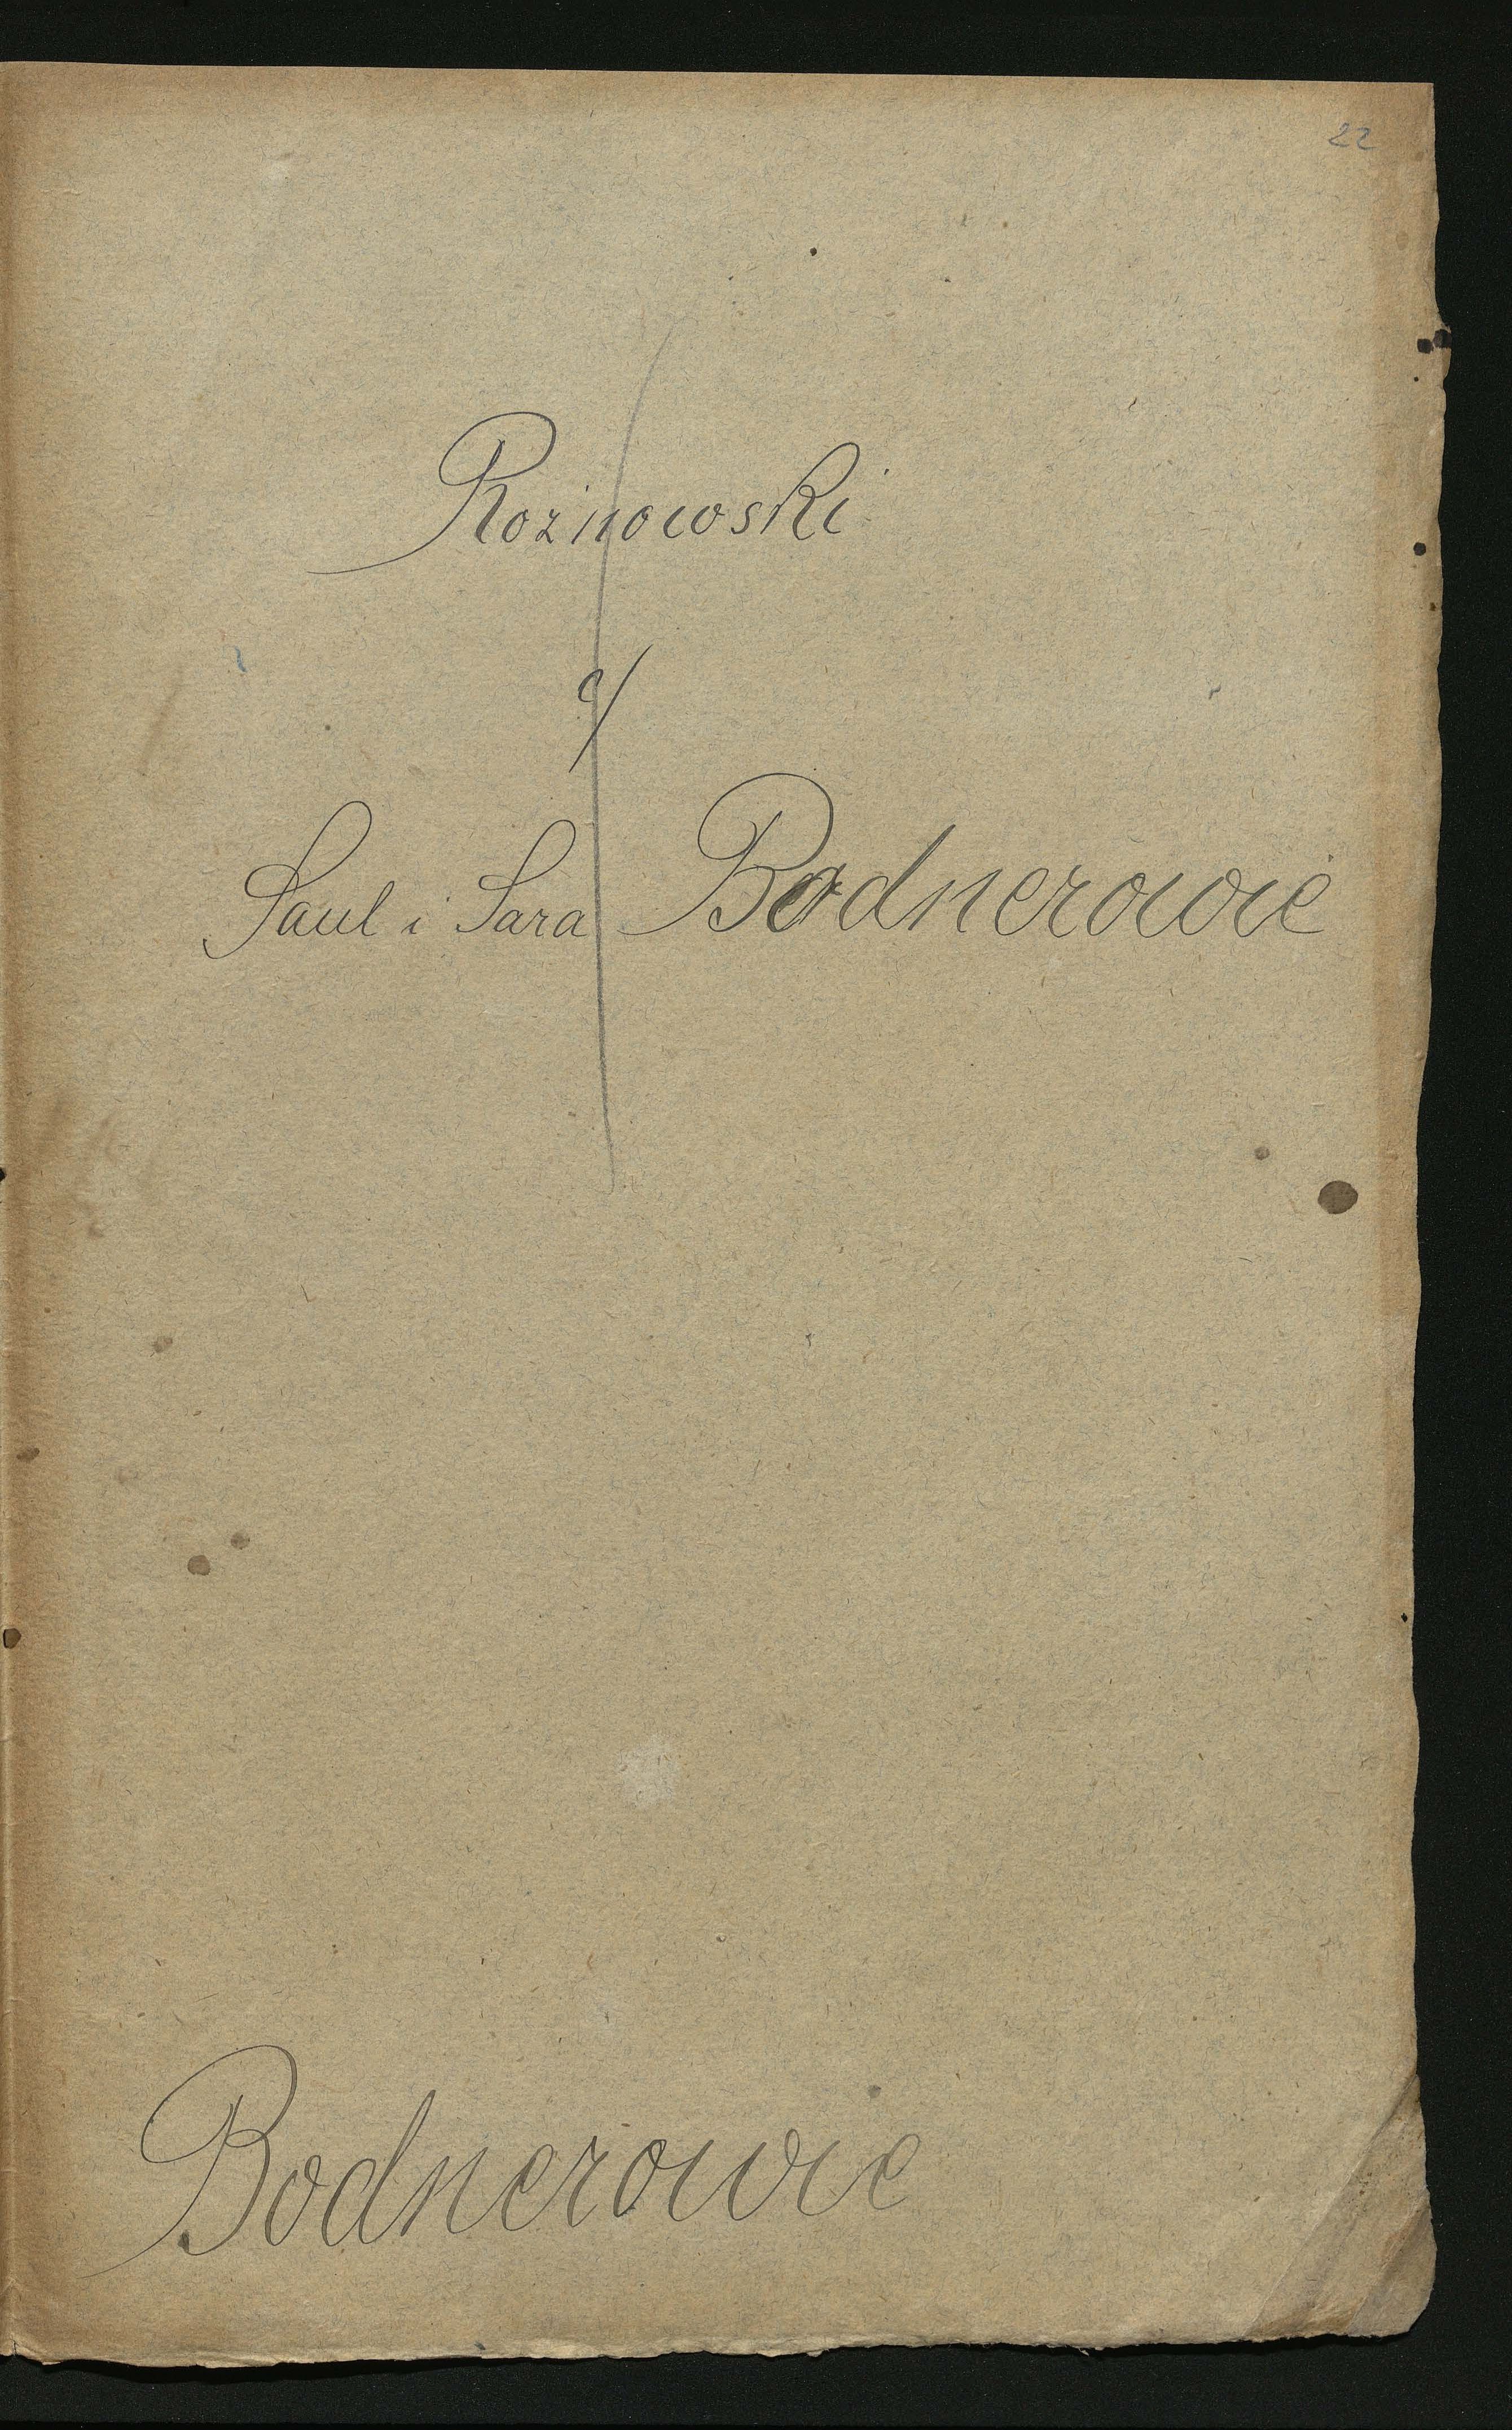 22
Roznowski
c/
Saul i Sara Bodnerowie
Bodnerowie